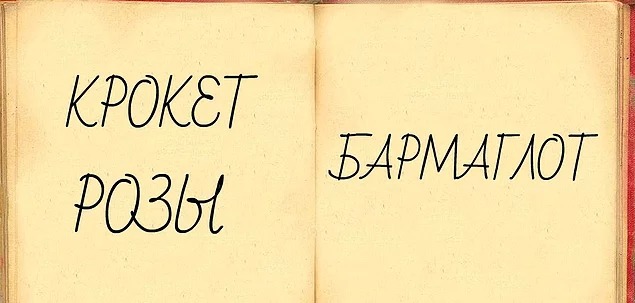 КРОКЕТ
РОЗЫ
БАРМАГЛОТ